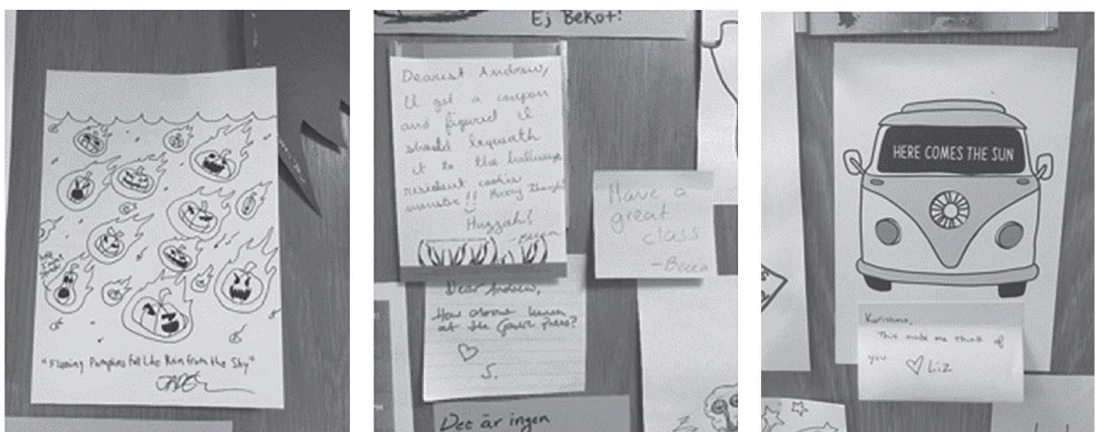 "Flaming Pumpkins Fall Like Rain from the Sky"
Ej Bekot!
Dearest Andrew,
I got a coupon
and figured I
should bequeath
it to the hallways
resident cookie
monster!!
Huzzah!
-Becca
Have a
great
class
-Becca
Dear Andrew,
How about lunch
at the
♡
S.
Det är ingen
HERE COMES THE SUN
Karishma,
This made me think of
you
♡ Liz